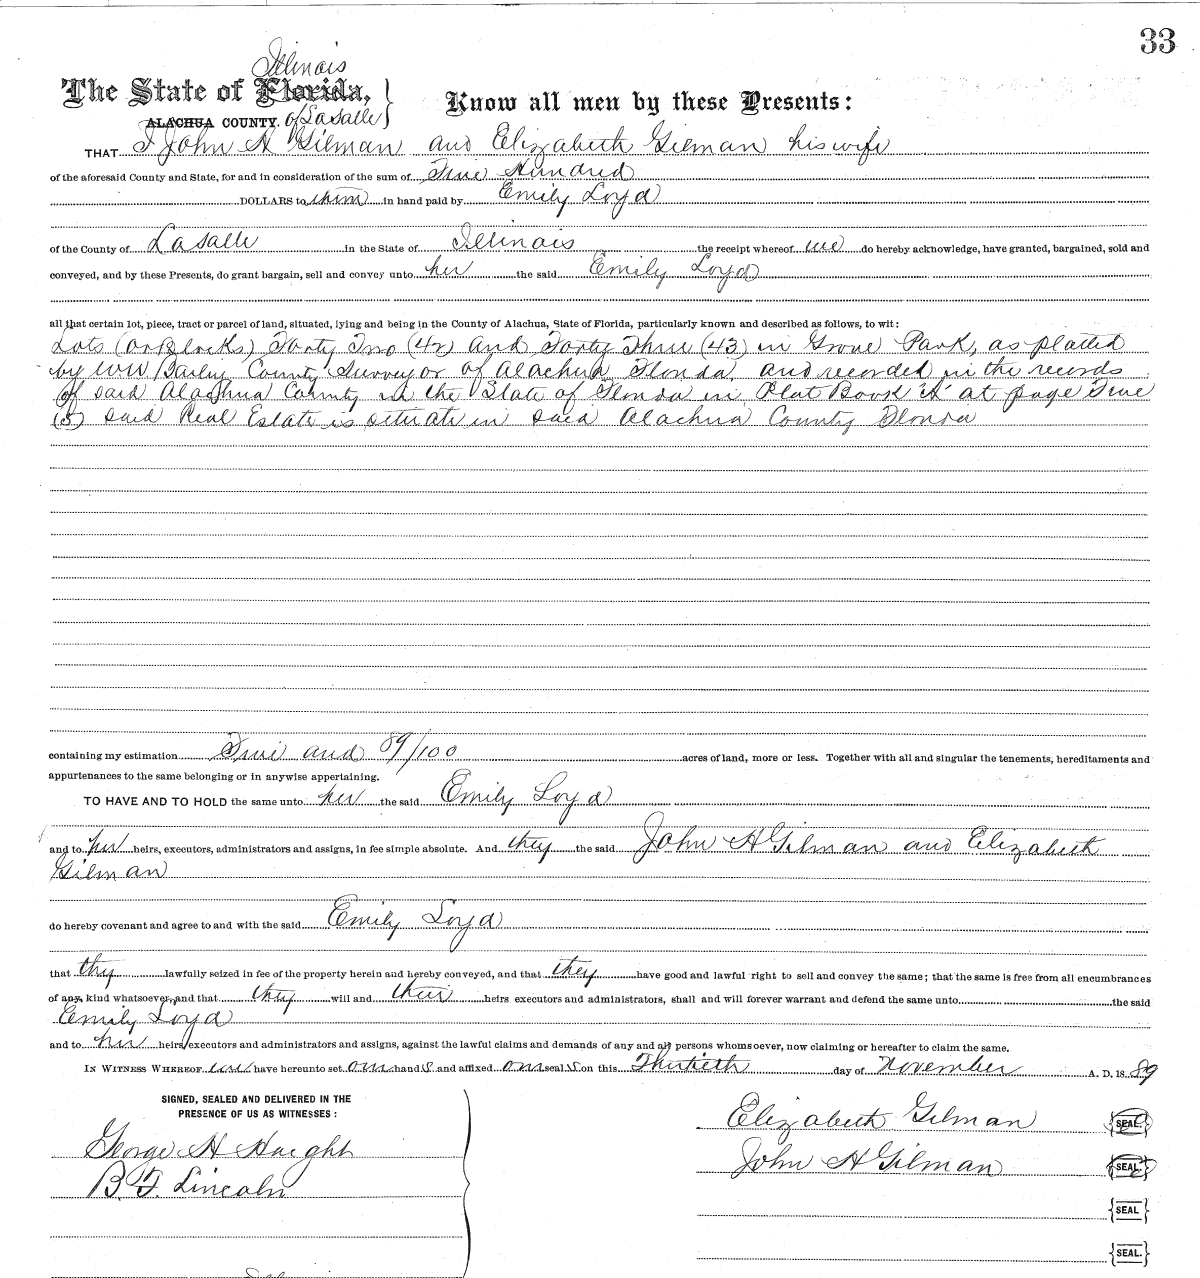 33
Illinois
The State of Florida,
ALACHUA COUNTY. of LaSalle
Know all men by these Presents:
THAT I John H Gilman and Elizabeth Gilman his wife
of the aforesaid County and State, for and in consideration of the sum of Five Hundred
DOLLARS to them in hand paid by Emily Loyd
of the County of LaSalle in the State of Illinois the receipt whereof we do hereby acknowledge, have granted, bargained, sold and
conveyed, and by these Presents, do grant bargain, sell and convey unto her the said Emily Loyd
all that certain lot, piece, tract or parcel of land, situated, lying and being in the County of Alachua, State of Florida, particularly known and described as follows, to wit:
Lots (or Blocks) Forty Two (42) and Forty Three (43) in Grove Park, as platted
by WW Bailey County Surveyor of Alachua Florida, and recorded in the records
of said Alachua County in the State of Florida in Plat Book "A" at page Five
(5) said Real Estate is situate in said Alachua County Florida
containing my estimation Five and 89/100 acres of land, more or less. Together with all and singular the tenements, hereditaments and
appurtenances to the same belonging or in anywise appertaining.
TO HAVE AND TO HOLD the same unto her the said Emily Loyd
and to her heirs, executors, administrators and assigns, in fee simple absolute. And they the said John H Gilman and Elizabeth
Gilman
do hereby covenant and agree to and with the said Emily Loyd
that they lawfully seized in fee of the property herein and hereby conveyed, and that they have good and lawful right to sell and convey the same; that the same is free from all encumbrances
of any kind whatsoever, and that they will and their heirs executors and administrators, shall and will forever warrant and defend the same unto the said
Emily Loyd
and to her heirs, executors and administrators and assigns, against the lawful claims and demands of any and all persons whomsoever, now claiming or hereafter to claim the same.
IN WITNESS WHEREOF we have hereunto set our hands and affixed our seals on this Thirtieth day of November A. D. 1889
SIGNED, SEALED AND DELIVERED IN THE
PRESENCE OF US AS WITNESSES:
George H Haight
B. F. Lincoln
Elizabeth Gilman SEAL.
John H Gilman SEAL.
SEAL
SEAL.